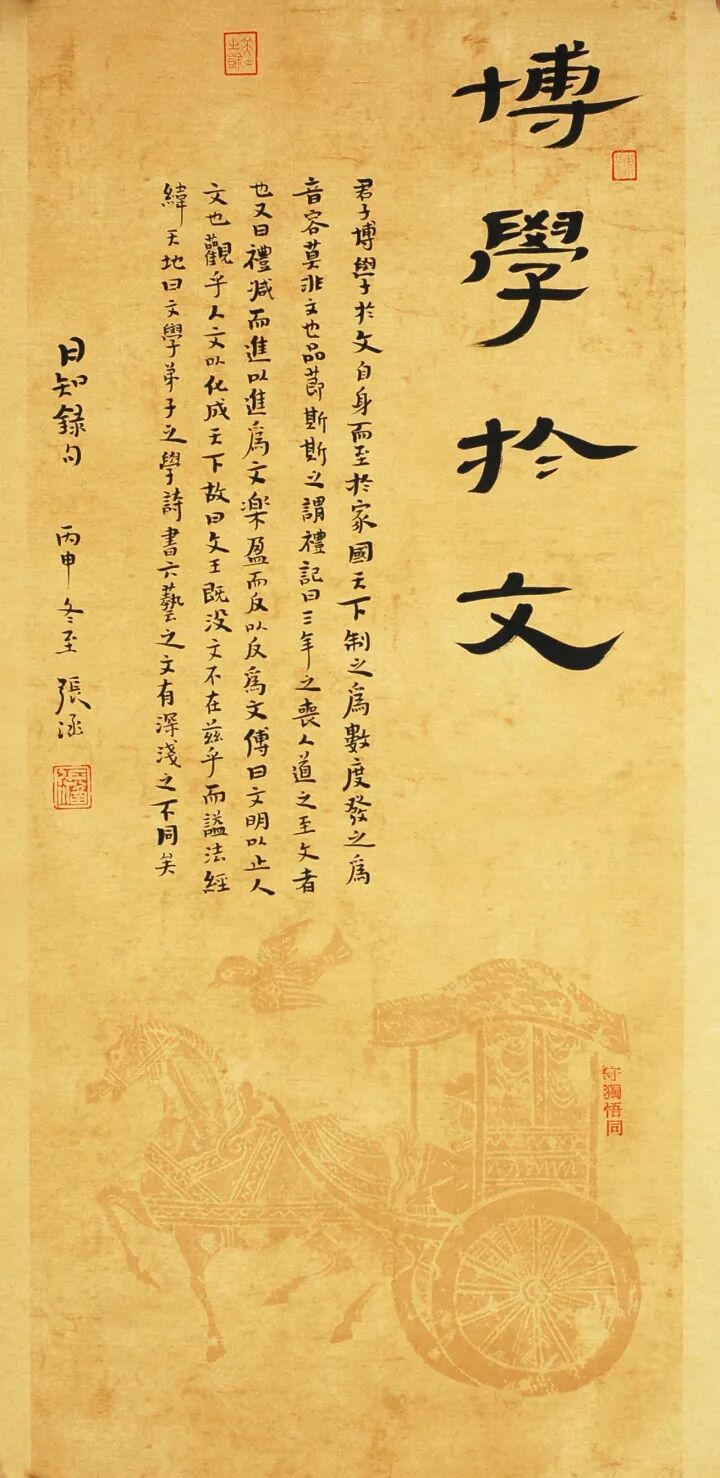 博學於文
君子博學於文自身而至於家國天下制之爲數度發之爲
音容莫非文也品節斯斯之謂禮記曰三年之喪人道之至文者
也又曰禮減而進以進爲文樂盈而反以反爲文傳曰文明以止人
文也觀乎人文以化成天下故曰文王既没文不在兹乎而謚法經
緯天地曰文學弟子之學詩書六藝之文有深淺之不同矣
日知録句 丙申冬至 張
守獨悟同